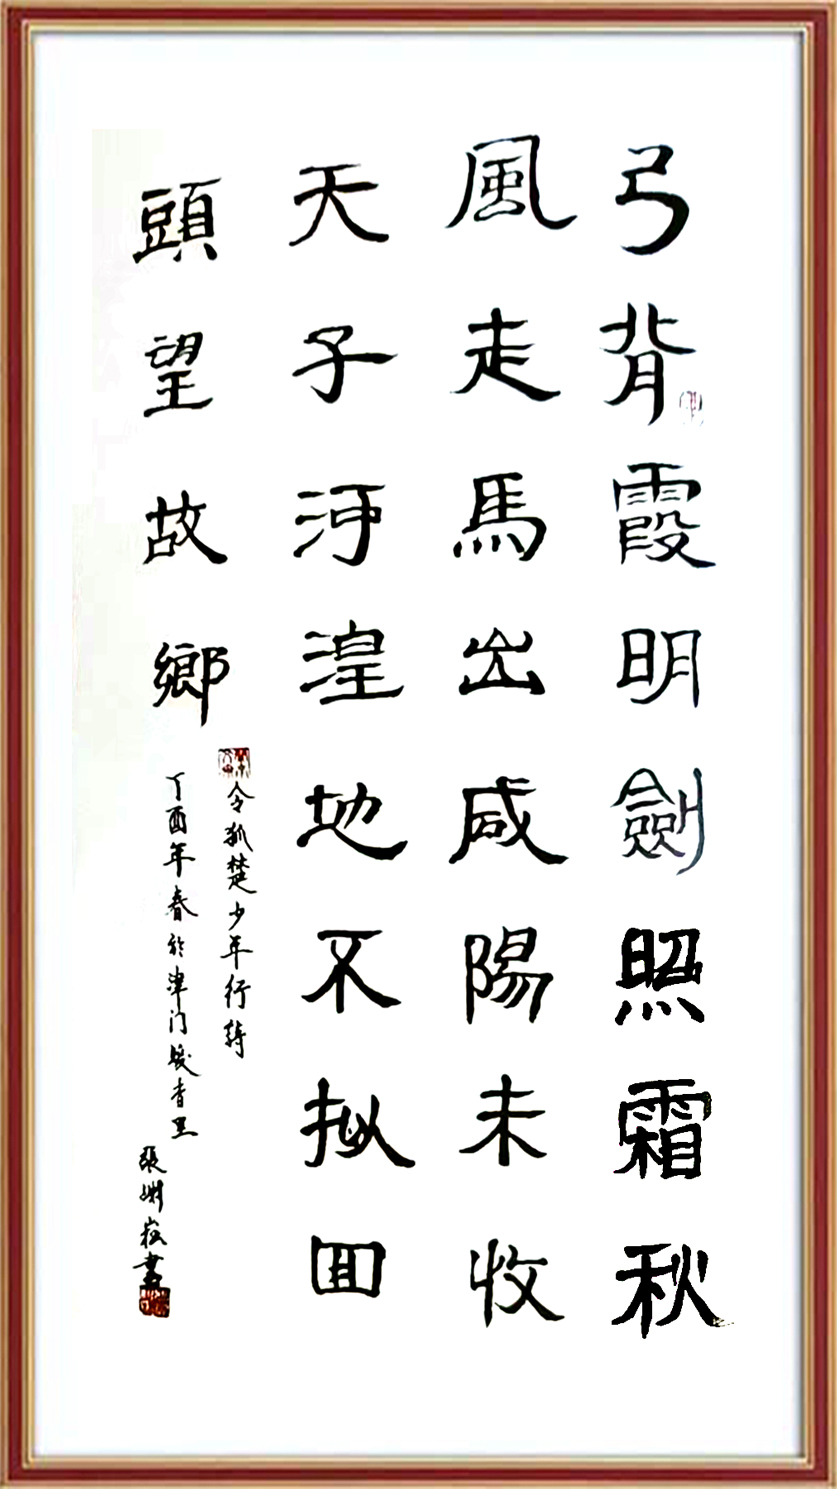 弓背霞明劍照霜秋
風走馬出咸陽未收
天子河湟地不拟回
頭望故鄉
令狐楚少年行詩
丁酉年春於津门暖香里
張嶽書